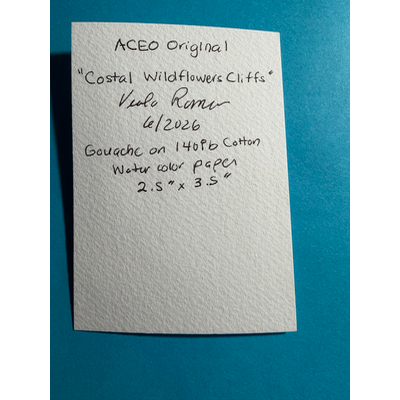 ACEO Original
"Costal Wildflowers Cliffs"
6/2026
Gouache on 140lb Cotton
Water color paper
2.5" x 3.5"